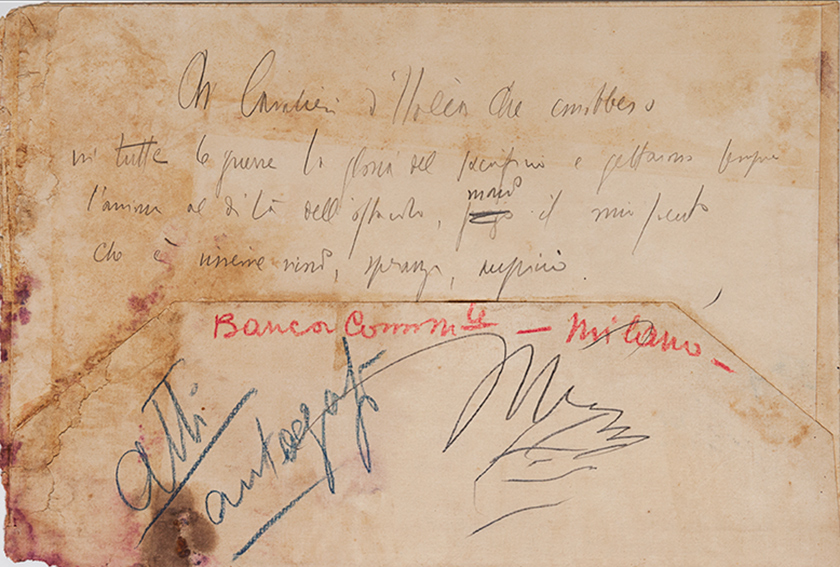 Ai Cavalieri d'Italia che conobbero
in tutte le guerre la gloria del sacrificio e gettarono sempre
l'anima al di là dell'ostacolo, mando il mio saluto
che è insieme ricordo, speranza, auspicio.
Banca Comm^le — Milano —
atti
autografi